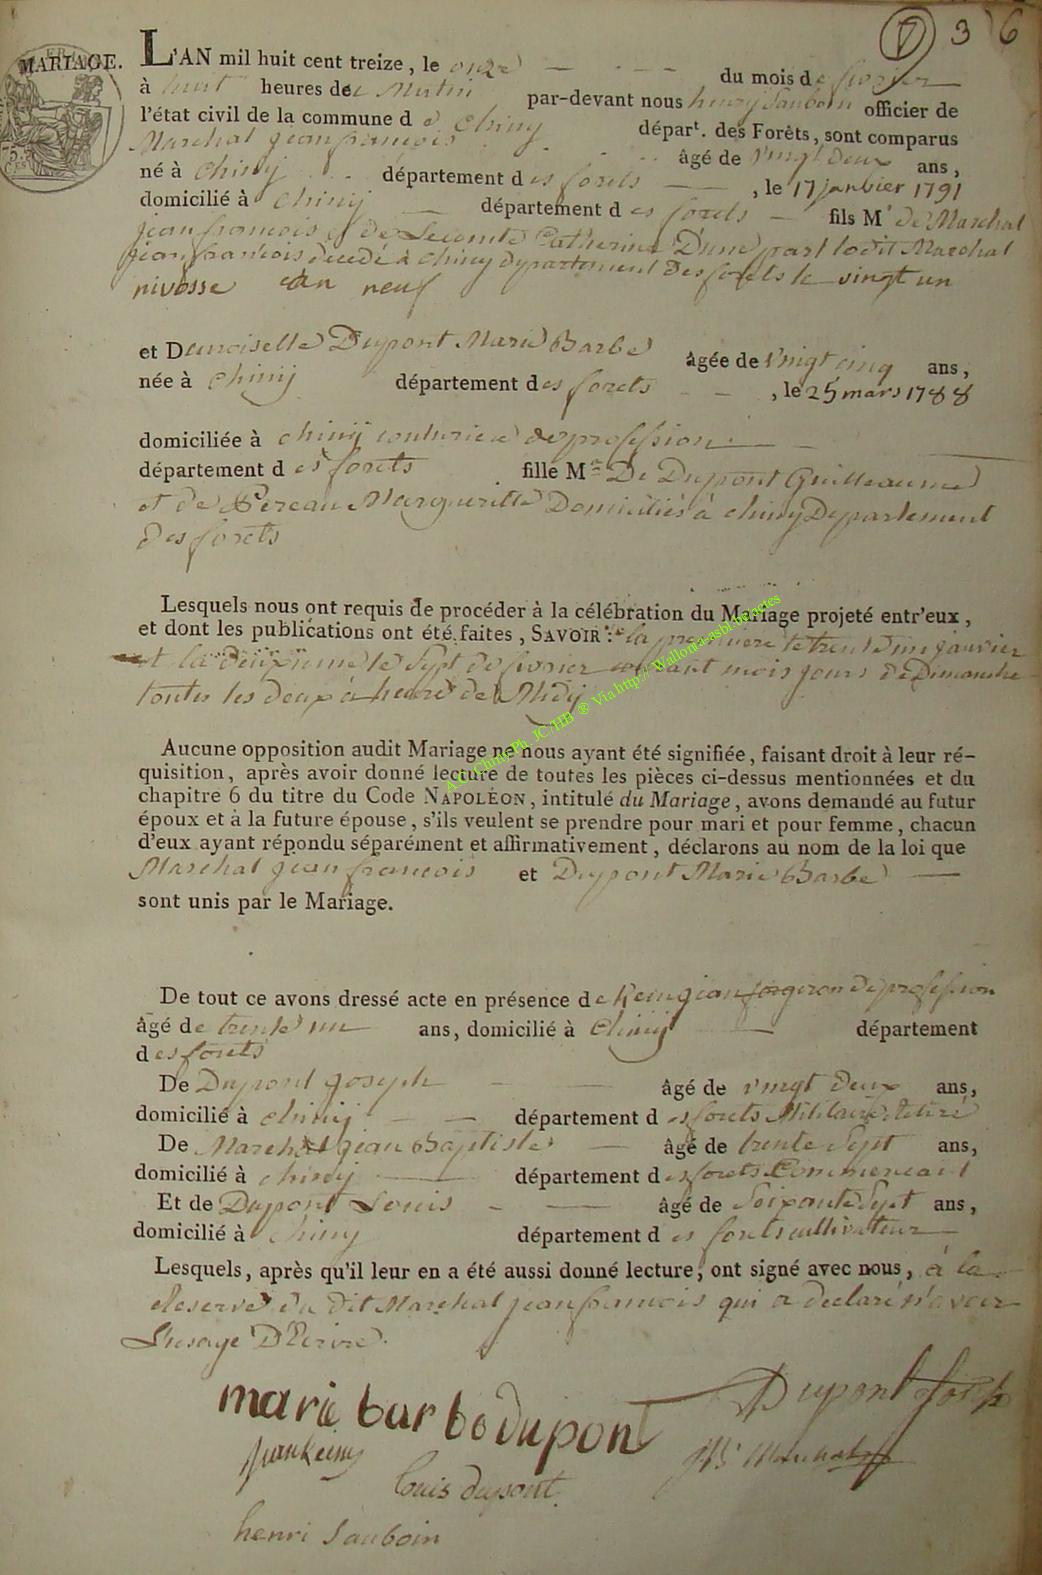 V 3 6
MARIAGE. L'AN mil huit cent treize, le onze du mois de fevrier
à huit heures du Matin par-devant nous henry Sauboin officier de
l'état civil de la commune de Chiny départ. des Forêts, sont comparus
Marchal jean francois âgé de vingt deux ans,
né à Chiny département des forets, le 17 janvier 1791
domicilié à Chiny département des forets fils Mr de Marchal
jean francois et de Lecomte Catherine D'une part ledit Marchal
jean francois decedé à Chiny departement des forets le vingt un
nivosse an neuf
et Demoiselle Dupont Marie Barbe âgée de vingt cinq ans,
née à Chiny département des forets, le 25 mars 1788
domiciliée à chiny couturiere de profession
département des forets fille Mre De Dupont Guilleaume
et de Margueritte Domiciliés à chiny Departement
Des forets
Lesquels nous ont requis de procéder à la célébration du Mariage projeté entr'eux,
et dont les publications ont été faites, SAVOIR : la premiere le trente un janvier
et la deuxieme le Sept de fevrier courant mois jours de Dimanche
toutes les deux à heure de Midy
Aucune opposition audit Mariage ne nous ayant été signifiée, faisant droit à leur ré-
quisition, après avoir donné lecture de toutes les pièces ci-dessus mentionnées et du
chapitre 6 du titre du Code NAPOLÉON, intitulé du Mariage, avons demandé au futur
époux et à la future épouse, s'ils veulent se prendre pour mari et pour femme, chacun
d'eux ayant répondu séparément et affirmativement, déclarons au nom de la loi que
Marchal jean francois et Dupont Marie Barbe
sont unis par le Mariage.
De tout ce avons dressé acte en présence de jean forgeron de profession
âgé de trente un ans, domicilié à Chiny département
des forets
De Dupont Joseph âgé de vingt deux ans,
domicilié à chiny département des forets Militaire Retiré
De Marchal jean Baptiste âgé de trente Sept ans,
domicilié à chiny département des forets Commercant
Et de Dupont Louis âgé de Soixante Sept ans,
domicilié à Chiny département des forets cultivateur
Lesquels, après qu'il leur en a été aussi donné lecture, ont signé avec nous, à la
Reserve du dit Marchal jean francois qui a declaré n'avoir
L'usage D'Ecrire.
marie barbe dupont Dupont Joseph
jean
Louis dupont
henri Sauboin
A.C. Chiny Ph. JC/HB ® Via http://Wallonia-asbl.be/actes